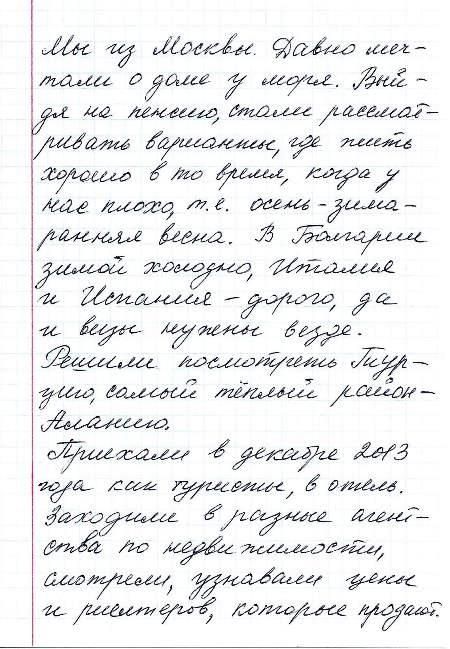 Мы из Москвы. Давно меч-
тали о доме у моря. Вый-
дя на пенсию, стали рассмат-
ривать варианты, где жить
хорошо в то время, когда у
нас плохо, т.е. осень-зима-
ранняя весна. В Болгарии
зимой холодно, Италия
и Испания - дорого, да
и визы нужены везде.
Решили посмотреть Тур-
цию, самый тёплый район-
Аланию.
Приехали в декабре 2013
года как туристы, в отель.
Заходили в разные агент-
ства по недвижимости,
смотрели, узнавали цены
и риелтеров, которые продают.